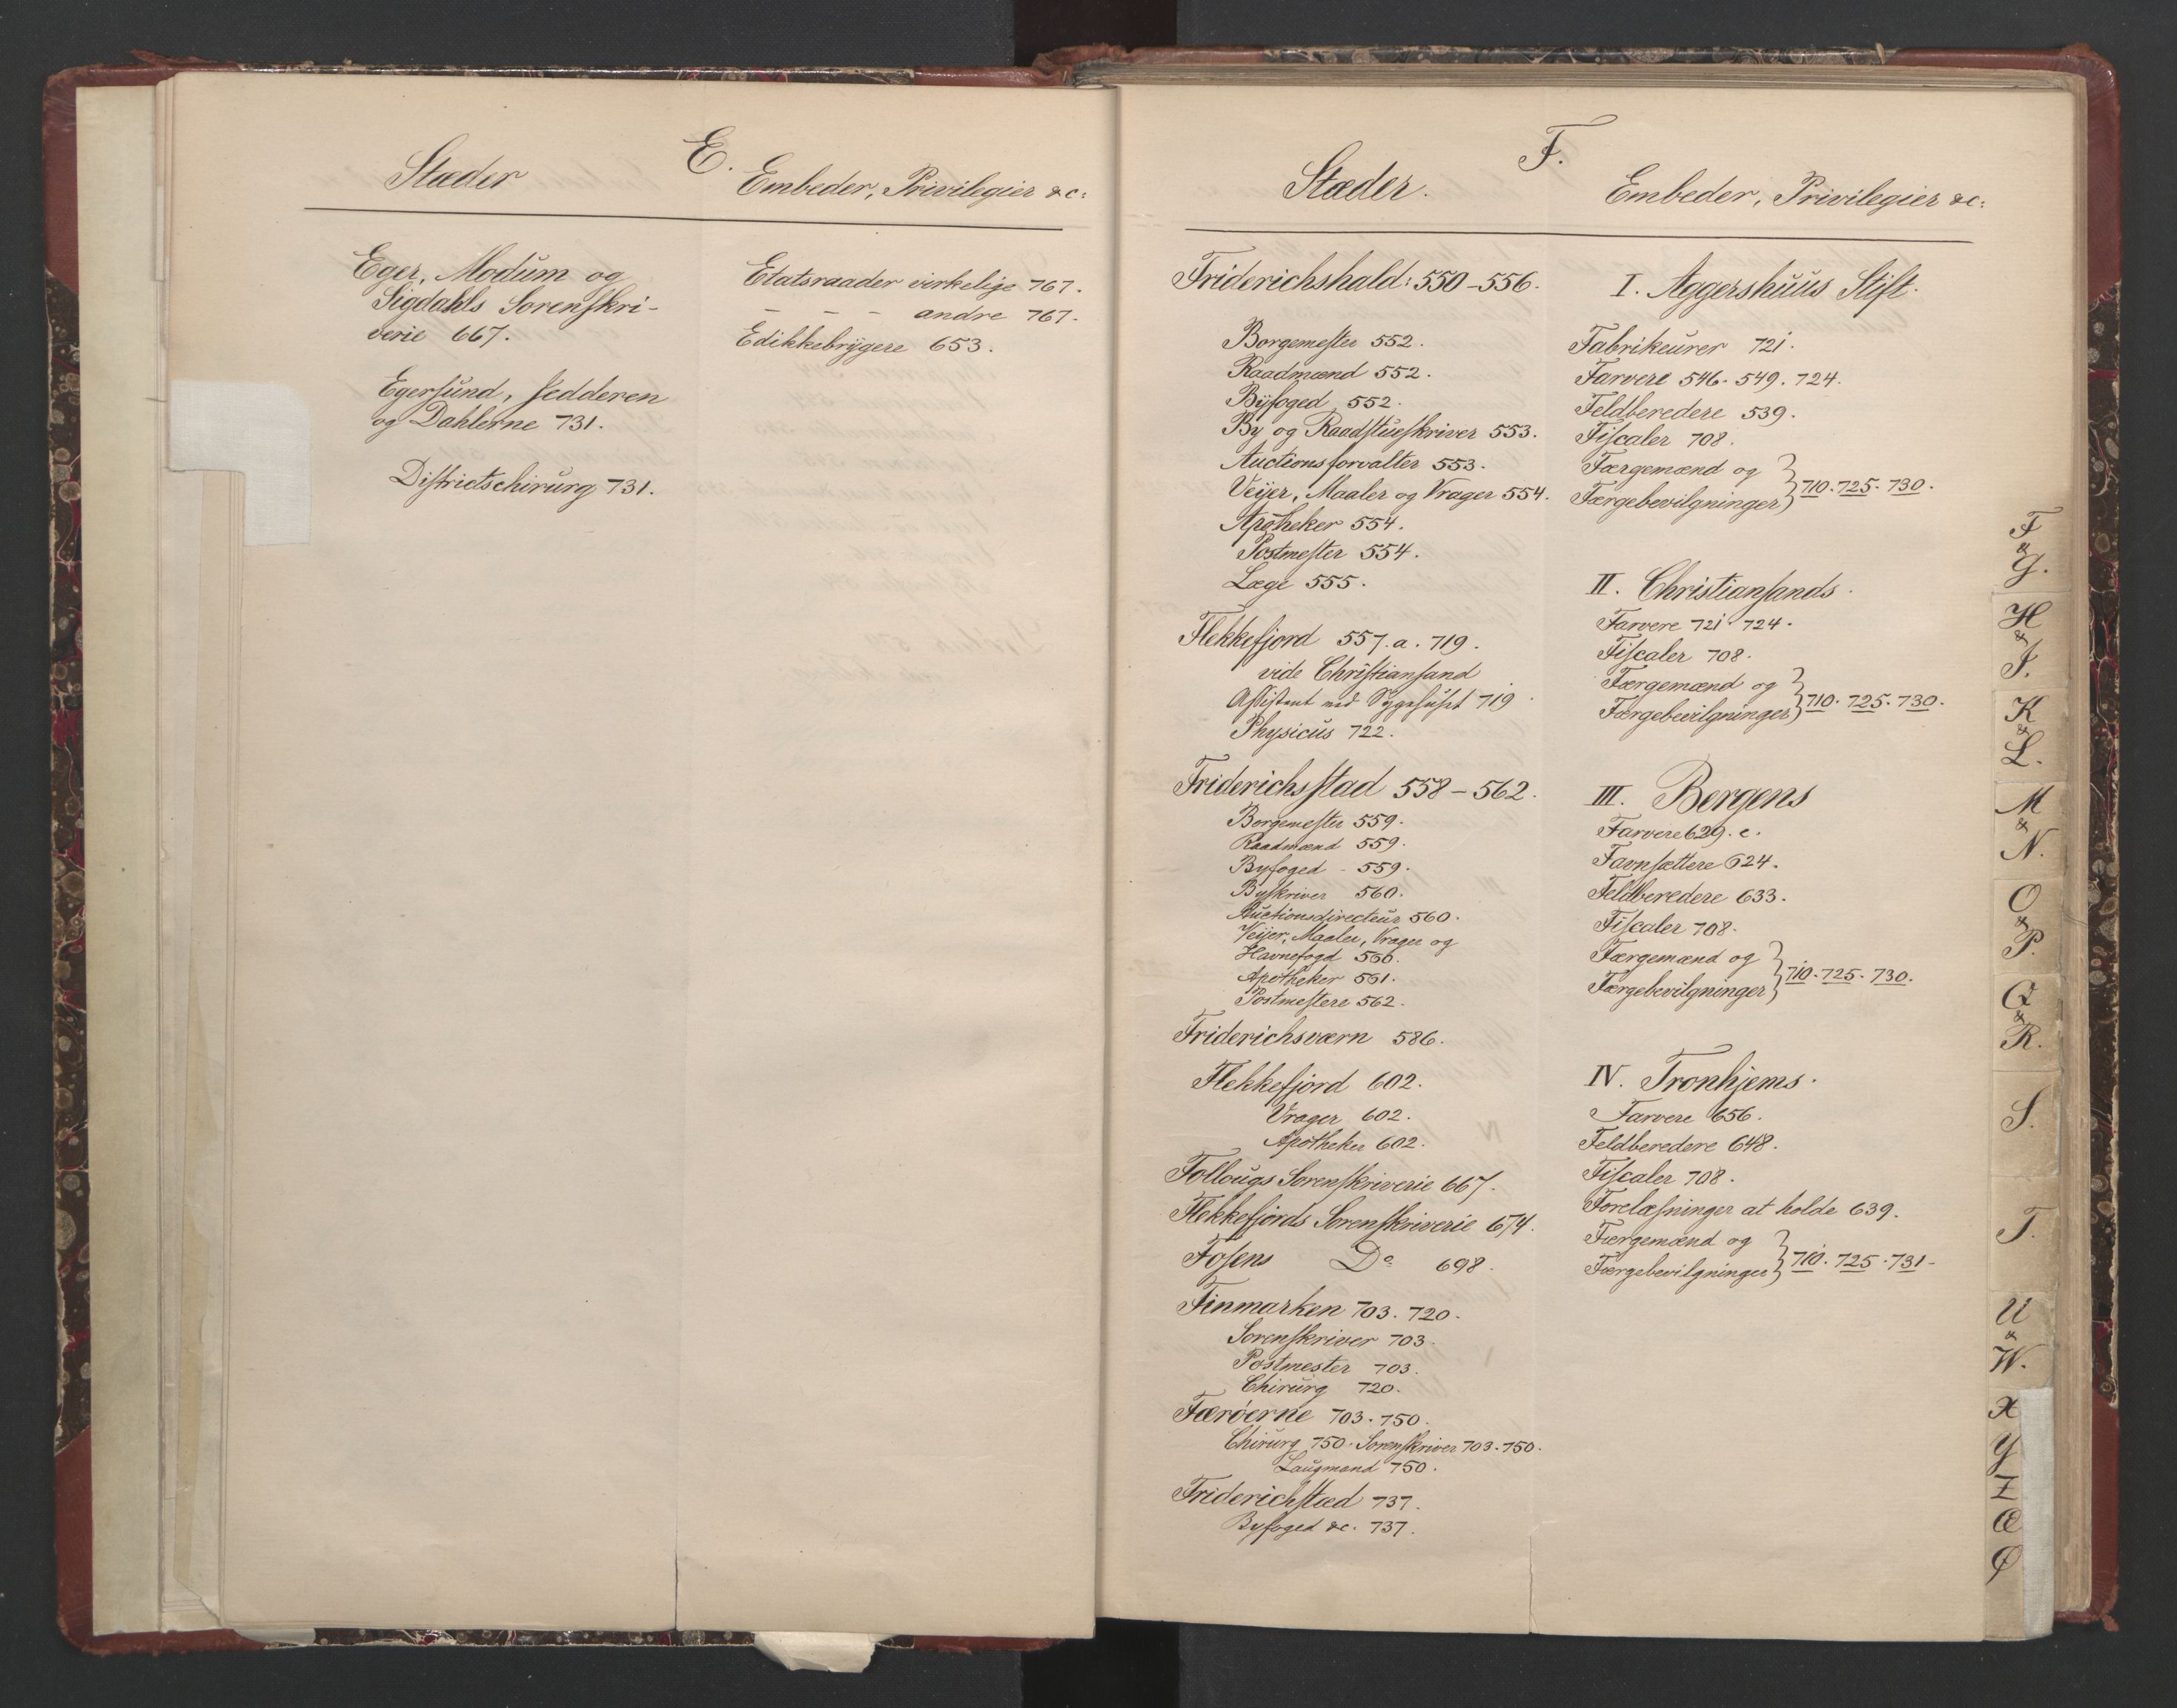 E.
Stæder
Embeder, Privilegier &c:
Eger, Modum og
Sigdahls Sorenskri-
verie 667.
Egersund, Jedderen
og Dahlerne 731.
Districtschirurg 731.
Etatsraader virkelige 767.
- - - andre 767.
Edikkebrÿgere 653.
F.
Stæder.
Embeder, Privilegier &c:
Friderichshald: 550-556.
Borgemester 552.
Raadmænd 552.
Bÿfoged 552.
By og Raadstueskriver 553.
Auctionsforvalter 553.
Veÿer, Maaler og Vrager 554.
Apotheker 554.
Postmester 554.
Læge 555.
Flekkefjord 557.a. 719.
vide Christiansand
Assistent ved Sygehuset 719.
Physicus 722.
Friderichsstad 558-562.
Borgemester 559.
Raadmænd 559.
Byfoged - 559.
Byskriver 560.
Auctionsdirecteur 560.
Veÿer, Maaler, Vrager og
Havnefogd 560.
Apotheker 561.
Postmestere 562.
Friderichsværn 586.
Flekkefjord 602.
Vrager 602.
Apotheker 602.
Follougs Sorenskriverie 667.
Flekkefjords Sorenskriverie 674.
Fosens Do 698.
Finmarken 703. 720.
Sorenskriver 703.
Postmester 703.
Chirurg 720.
Færöerne 703. 750.
Chirurg 750. Sorenskriver 703. 750.
Laugmand 750.
Friderichstad 737.
Byfoged &c. 737.
I. Aggershuus Stift.
Fabrikeurer 721.
Farvere 546. 549. 724.
Feldberedere 539.
Fiscaler 708.
Færgemænd og
Færgebevilgninger} 710. 725. 730.
II. Christiansands.
Farvere 721. 724.
Fiscaler 708.
Færgemænd og
Færgebevilgninger} 710. 725. 730.
III. Bergens
Farvere 629. c.
Favnsættere 624.
Feldberedere 633.
Fiscaler 708.
Færgemænd og
Færgebevilgninger} 710. 725. 730.
IV. Tronhjems.
Farvere 656.
Feldberedere 648.
Fiscaler 708.
Forelæsninger at holde 639.
Færgemænd og
Færgebevilgninger} 710. 725. 731.
F
&
G.
H
&
I.
K
&
L.
M
&
N.
O
&
P.
Q
&
R.
S.
T.
U
&
W.
X
Y
Z
Æ
Ø